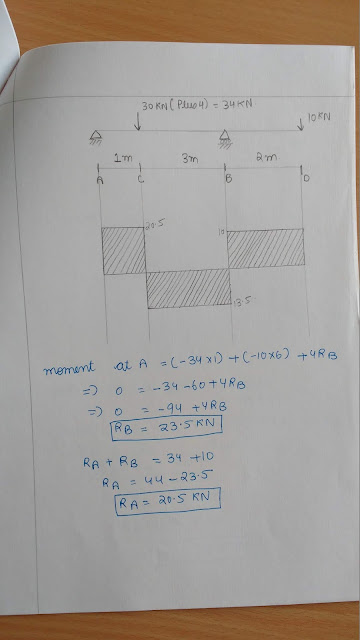 30KN (Plus 4) = 34KN
10KN
1m 3m 2m
A C B D
20.5
10
13.5
moment at A = (-34x1) + (-10x6) + 4RB
=) 0 = -34 -60 + 4RB
=) 0 = -94 + 4RB
RB = 23.5 KN
RA + RB = 34 + 10
RA = 44 - 23.5
RA = 20.5 KN